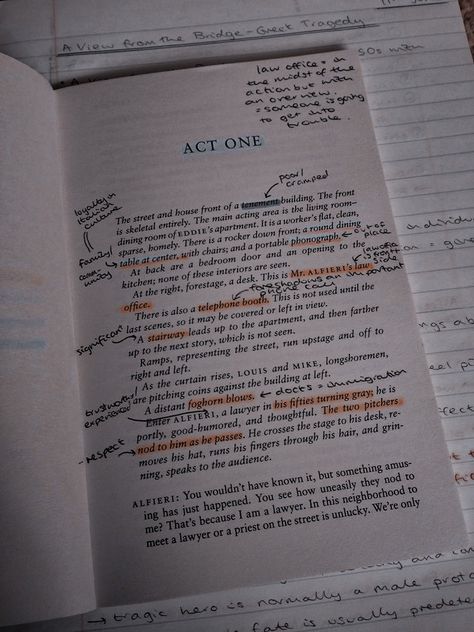 A View from the Bridge - Greek Tragedy
50s with
law office = in
the midst of the
action but with
an overview.
= someone is going
to get into
trouble.
ACT ONE
poor/
cramped
loyalty in
Italian
culture
The street and house front of a tenement building. The front
is skeletal entirely. The main acting area is the living room–
dining room of EDDIE'S apartment. It is a worker's flat, clean,
sparse, homely. There is a rocker down front; a round dining
family/
community
table at center, with chairs; and a portable phonograph.
out of
place
At back are a bedroom door and an opening to the
kitchen; none of these interiors are seen.
At the right, forestage, a desk. This is Mr. ALFIERI'S law
office.
foreshadows an important
phone call
There is also a telephone booth. This is not used until the
last scenes, so it may be covered or left in view.
significant
A stairway leads up to the apartment, and then farther
up to the next story, which is not seen.
Ramps, representing the street, run upstage and off to
right and left.
As the curtain rises, LOUIS and MIKE, longshoremen,
are pitching coins against the building at left.
A distant foghorn blows.
docks = immigration
trustworthy/
experienced
Enter ALFIERI, a lawyer in his fifties turning gray; he is
portly, good-humored, and thoughtful. The two pitchers
respect
nod to him as he passes. He crosses the stage to his desk, re-
moves his hat, runs his fingers through his hair, and grin-
ning, speaks to the audience.
ALFIERI: You wouldn't have known it, but something amus-
ing has just happened. You see how uneasily they nod to
me? That's because I am a lawyer. In this neighborhood to
meet a lawyer or a priest on the street is unlucky. We're only
→ tragic hero is normally a male
fate is usually